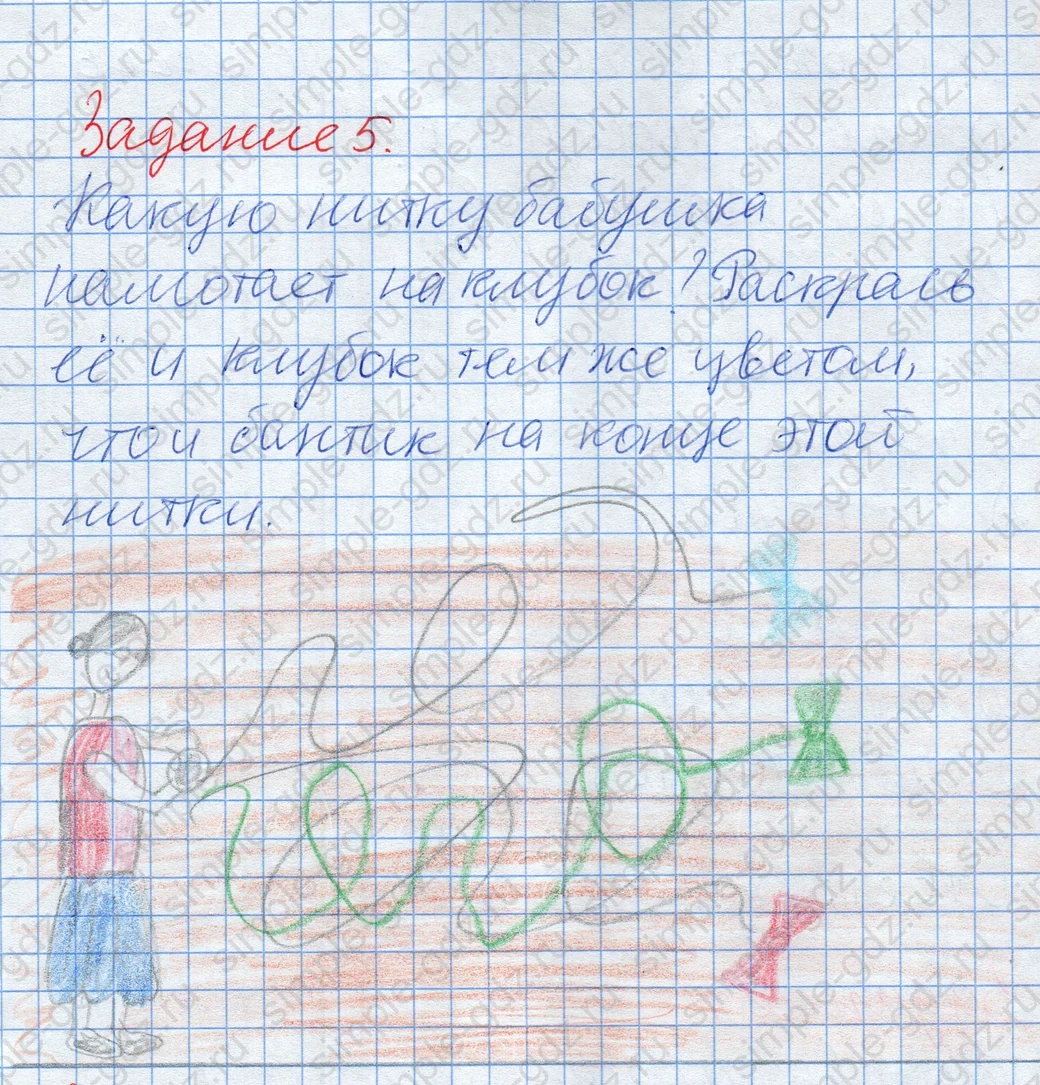 Задание 5.
Какую нитку бабушка
намотает на клубок? Раскрась
её и клубок тем же цветом,
что и бантик на конце этой
нитки.
simple-gdz.ru